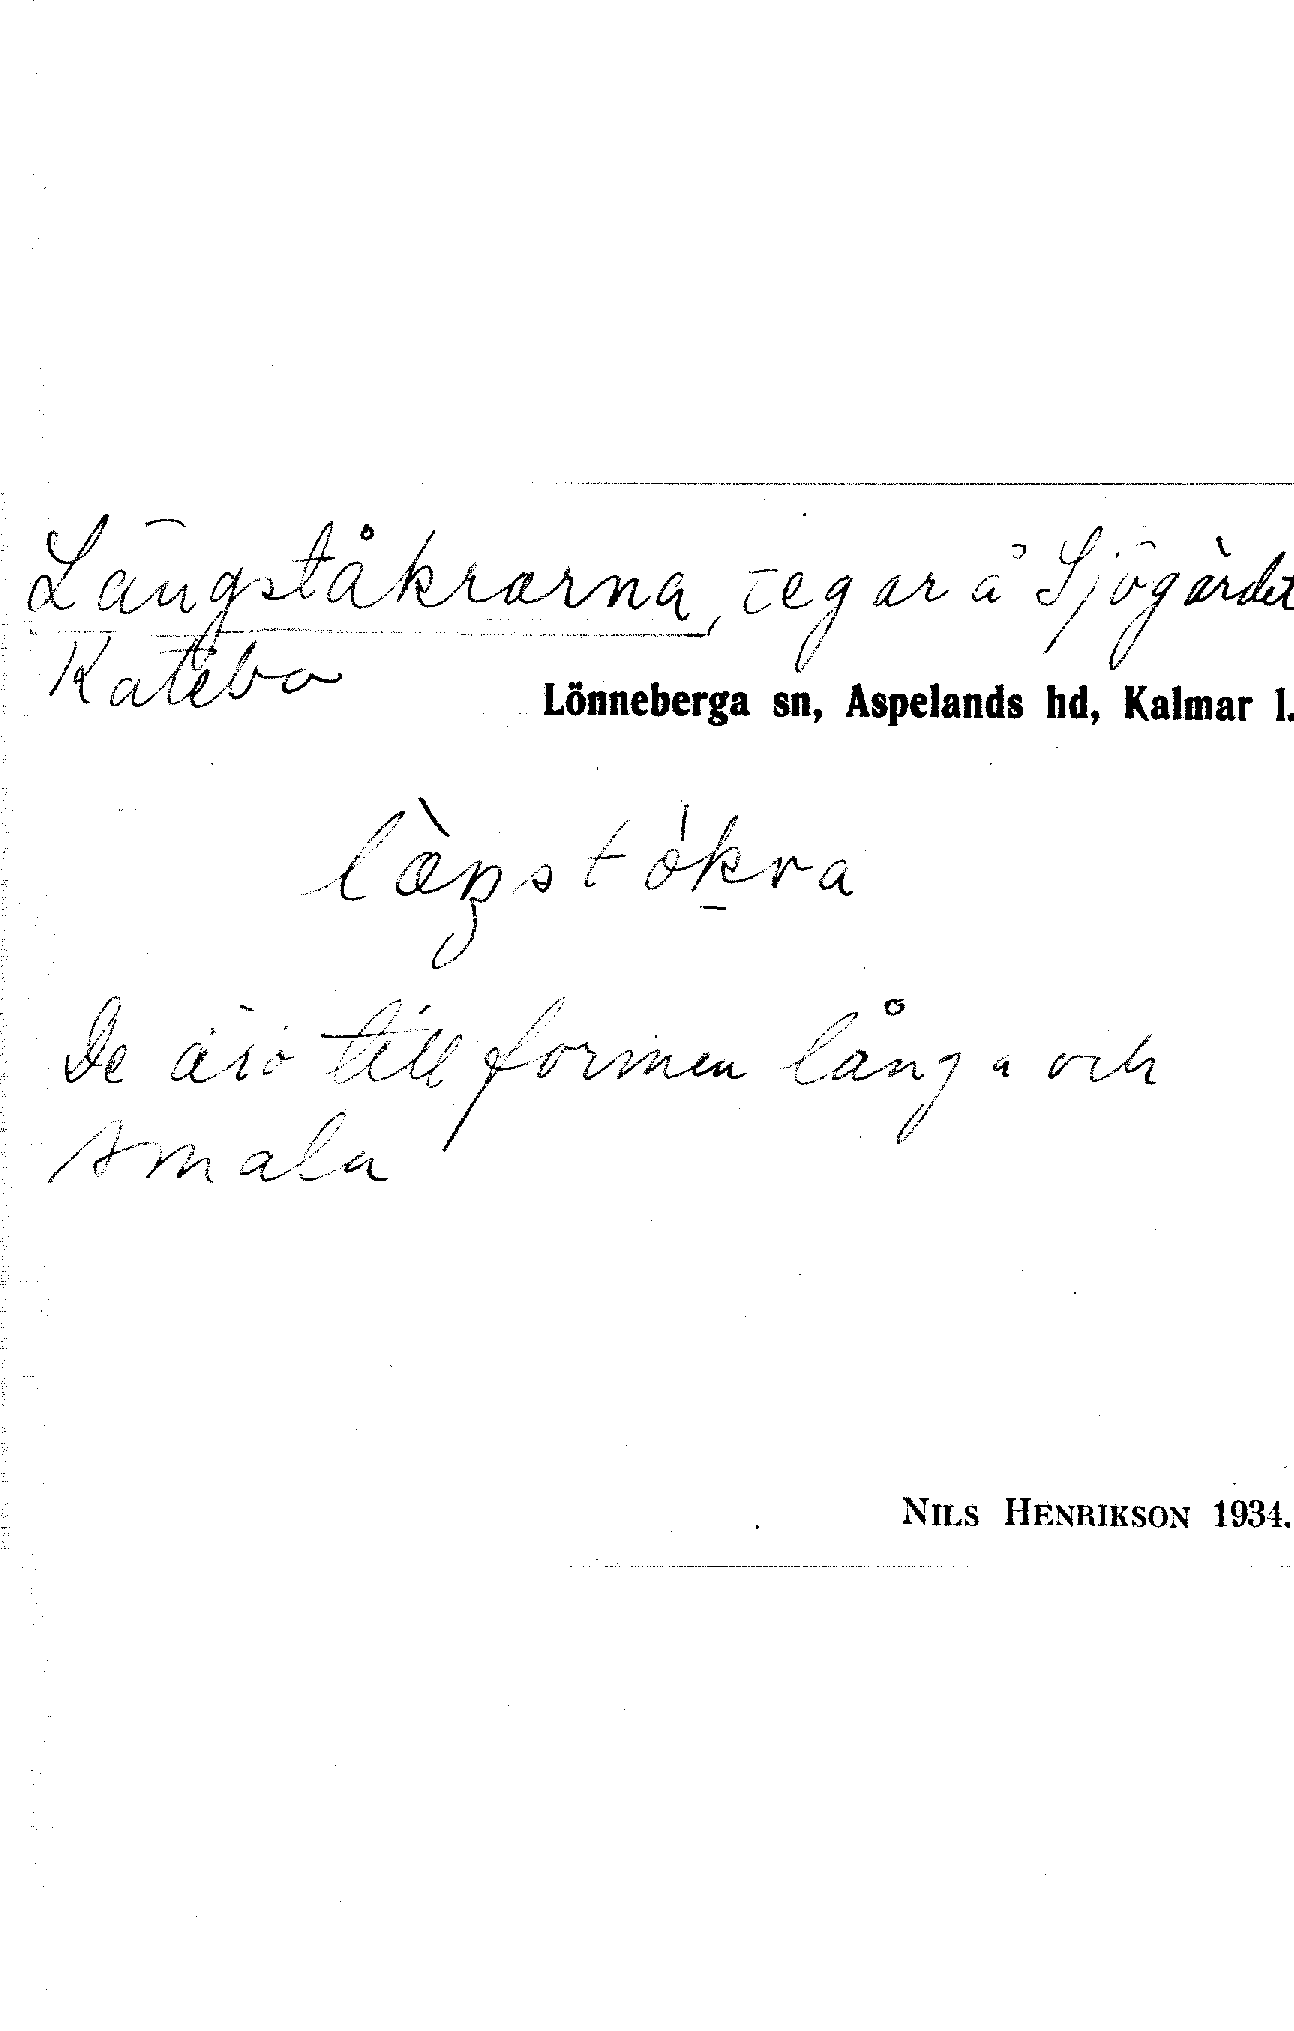 Längståkrarna, tegar å Sjögärdet
Katebo
Lönneberga sn, Aspelands hd, Kalmar l.
De äro till formen långa och
smala
NILS HENRIKSON 1934.